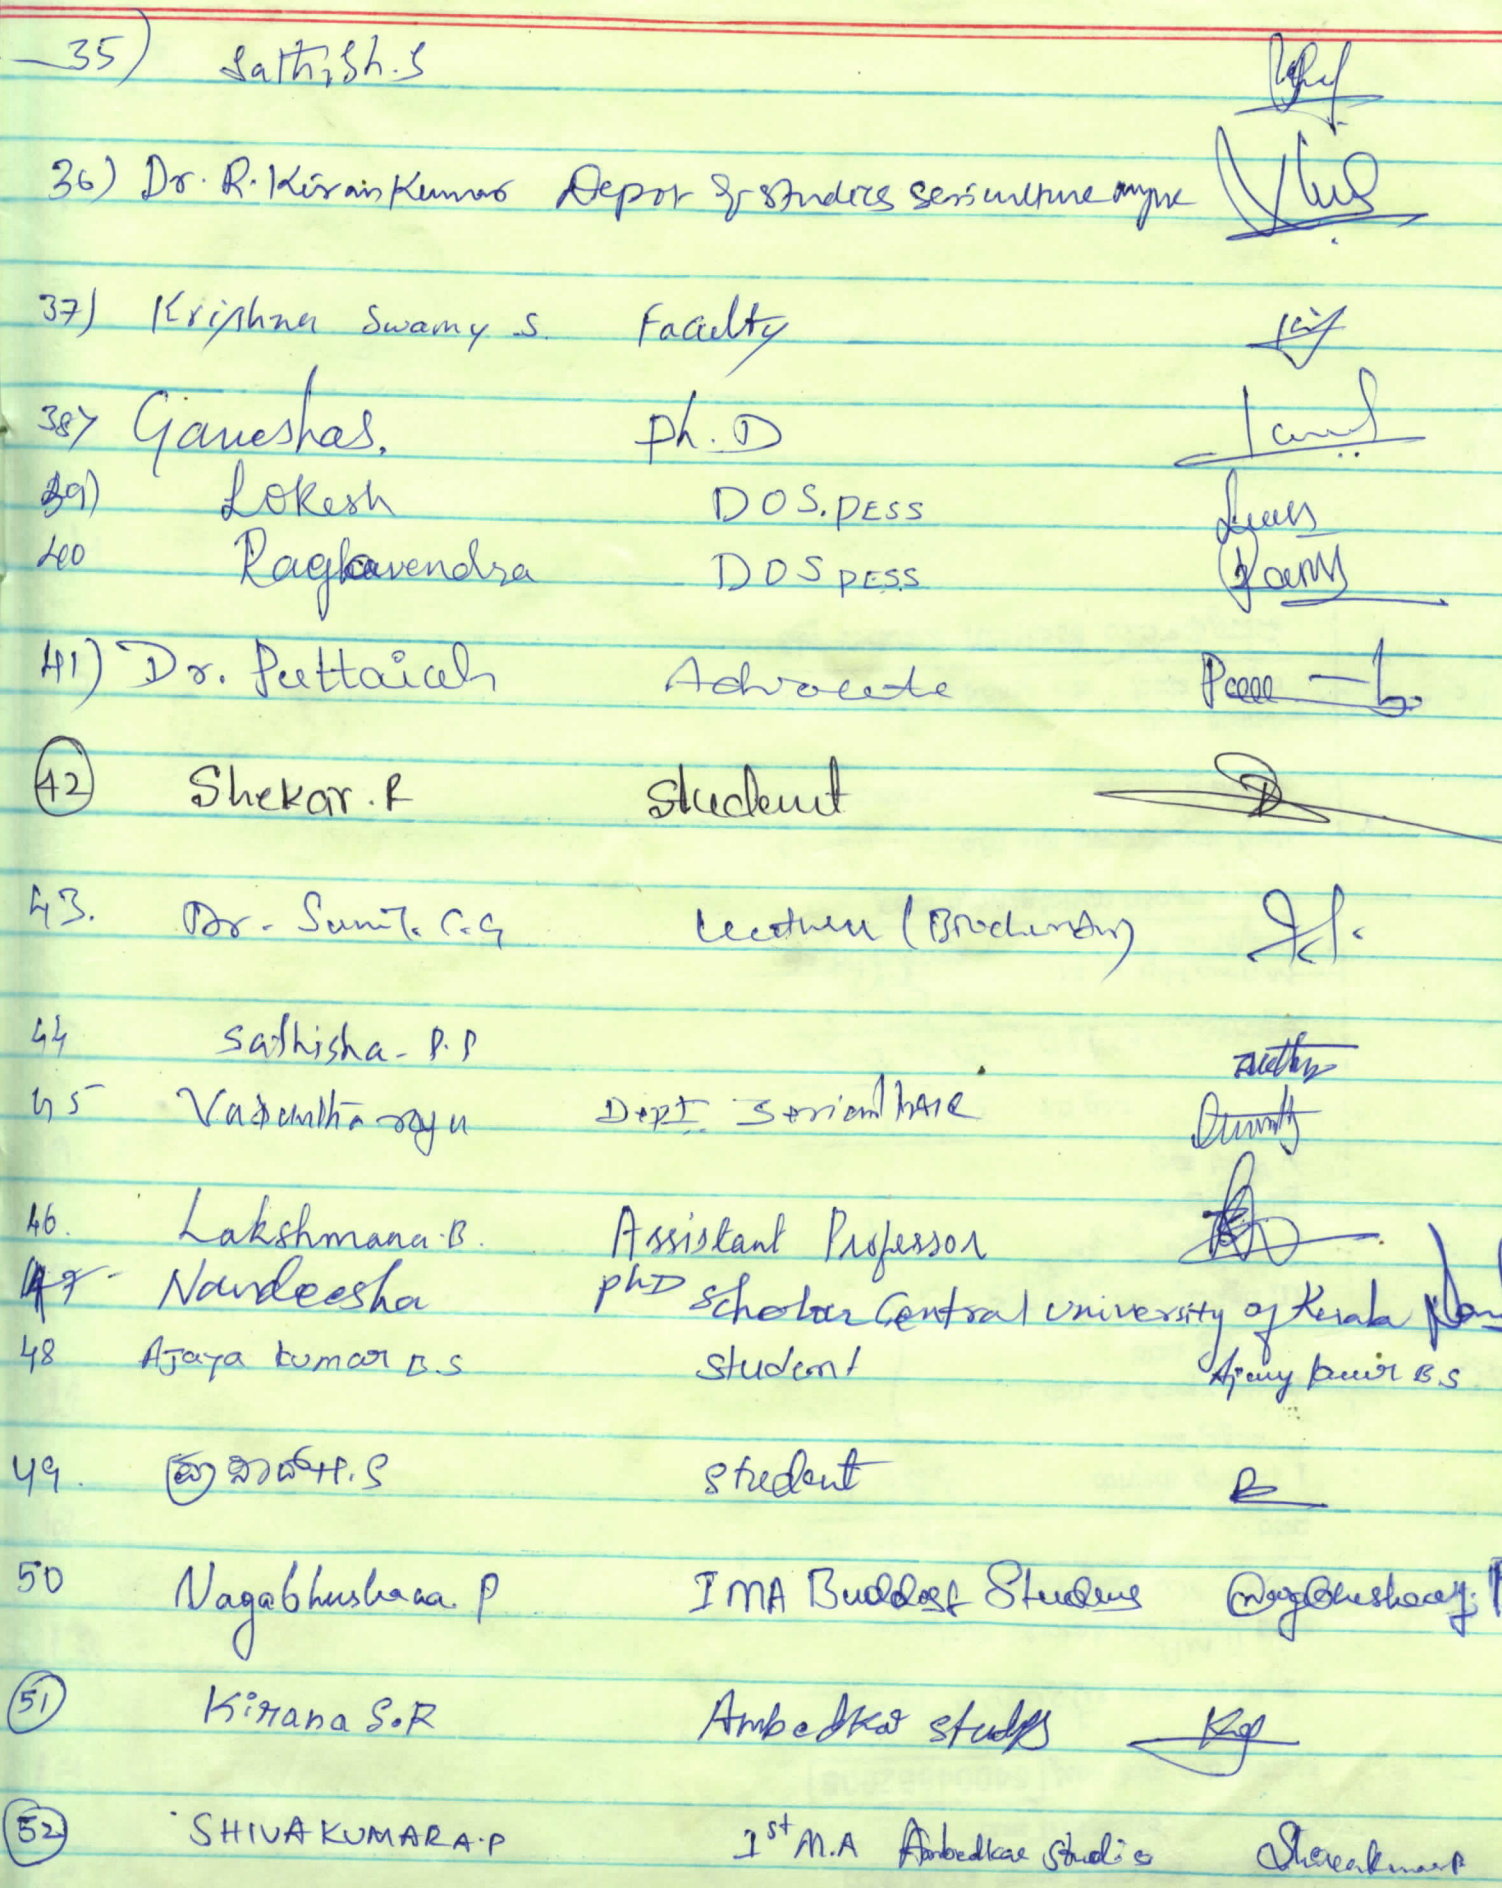 35) Sathish.S
36) Dr. R. Kiran Kumar Depot of studies sericulture
37) Krishna Swamy S. Faculty
38) Ganeshas. Ph.D
39) Lokesh DOS.PESS
40 Raghavendra DOS PESS
41) Dr. Puttaiah Advocate
42 Shekar.R Student
43. Dr. Sunil. C.G Lecturer (Biochemistry)
44 Sathisha- P.P
45 Vasantha raju Dept. Sericulture
46. Lakshmana.B. Assistant Professor
47- Nandeesha phD Scholar Central University of Kerala
48 Ajaya kumar B.S student Ajay kumar B.S
49. H.S student
50 Nagabhushana. P I MA Buddist Studens
51 Kirana S.R Ambedkar studies
52 SHIVAKUMARA.P 1st M.A Ambedkar Studies Shivakumar P